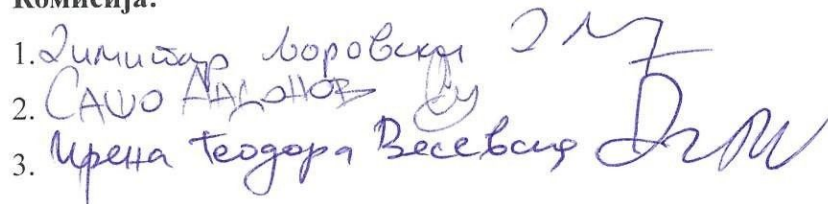 Комисија:
1. Димитар Боровски
2. САШО
3. Ирена Теодора Весевска